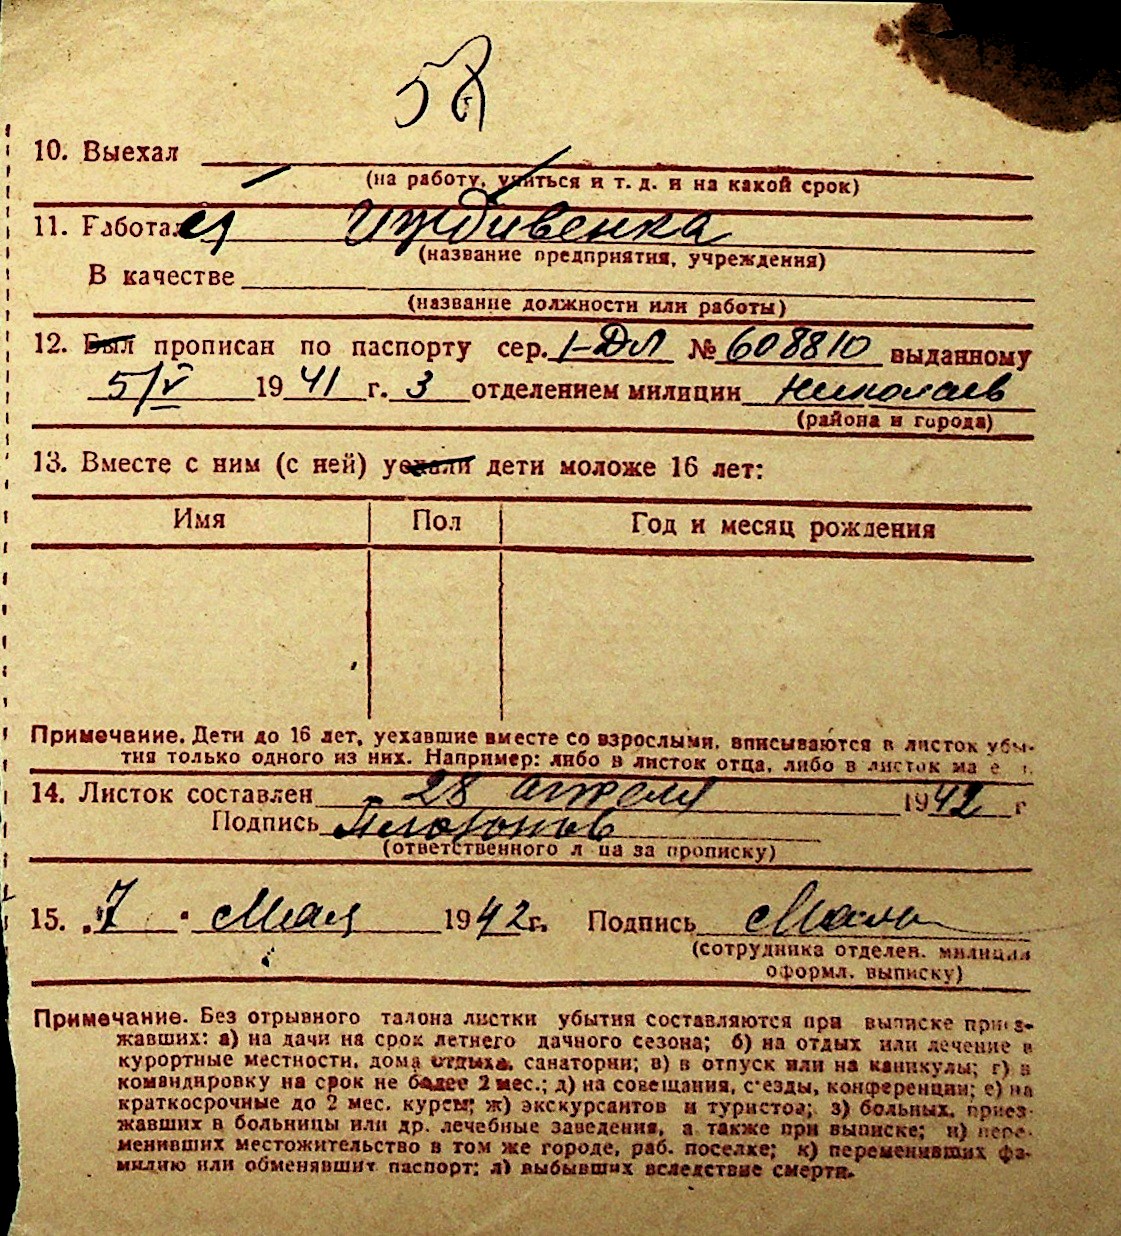 58
10. Выехал
(на работу, учиться и т. д. и на какой срок)
11. Работал а Иждивенка
(название предприятия, учреждения)
В качестве
(название должности или работы)
12. Был прописан по паспорту сер. I-ДЛ № 608810 выданному
5/V 1941 г. 3 отделением милиции Николаев
(района и города)
13. Вместе с ним (с ней) уехали дети моложе 16 лет:
Имя Пол Год и месяц рождения
Примечание. Дети до 16 лет, уехавшие вместе со взрослыми, вписываются в листок убы-
тия только одного из них. Например: либо в листок отца, либо в листок
14. Листок составлен 28 апреля 1942 г
Подпись
(ответственного лица за прописку)
15. „7 " Мая 1942 г. Подпись
(сотрудника отделен. милиции
оформл. выписку)
Примечание. Без отрывного талона листки убытия составляются при выписке приез-
жавших: а) на дачи на срок летнего дачного сезона; б) на отдых или лечение в
курортные местности, дома отдыха, санатории; в) в отпуск или на каникулы; г) в
командировку на срок не более 2 мес.; д) на совещания, с'езды, конференции; е) на
краткосрочные до 2 мес. курсы; ж) экскурсантов и туристов; з) больных, приез-
жавших в больницы или др. лечебные заведения, а также при выписке; и) пере-
менивших местожительство в том же городе, раб. поселке; к) переменивших фа-
милию или обменявших паспорт; л) выбывших вследствие смерти.